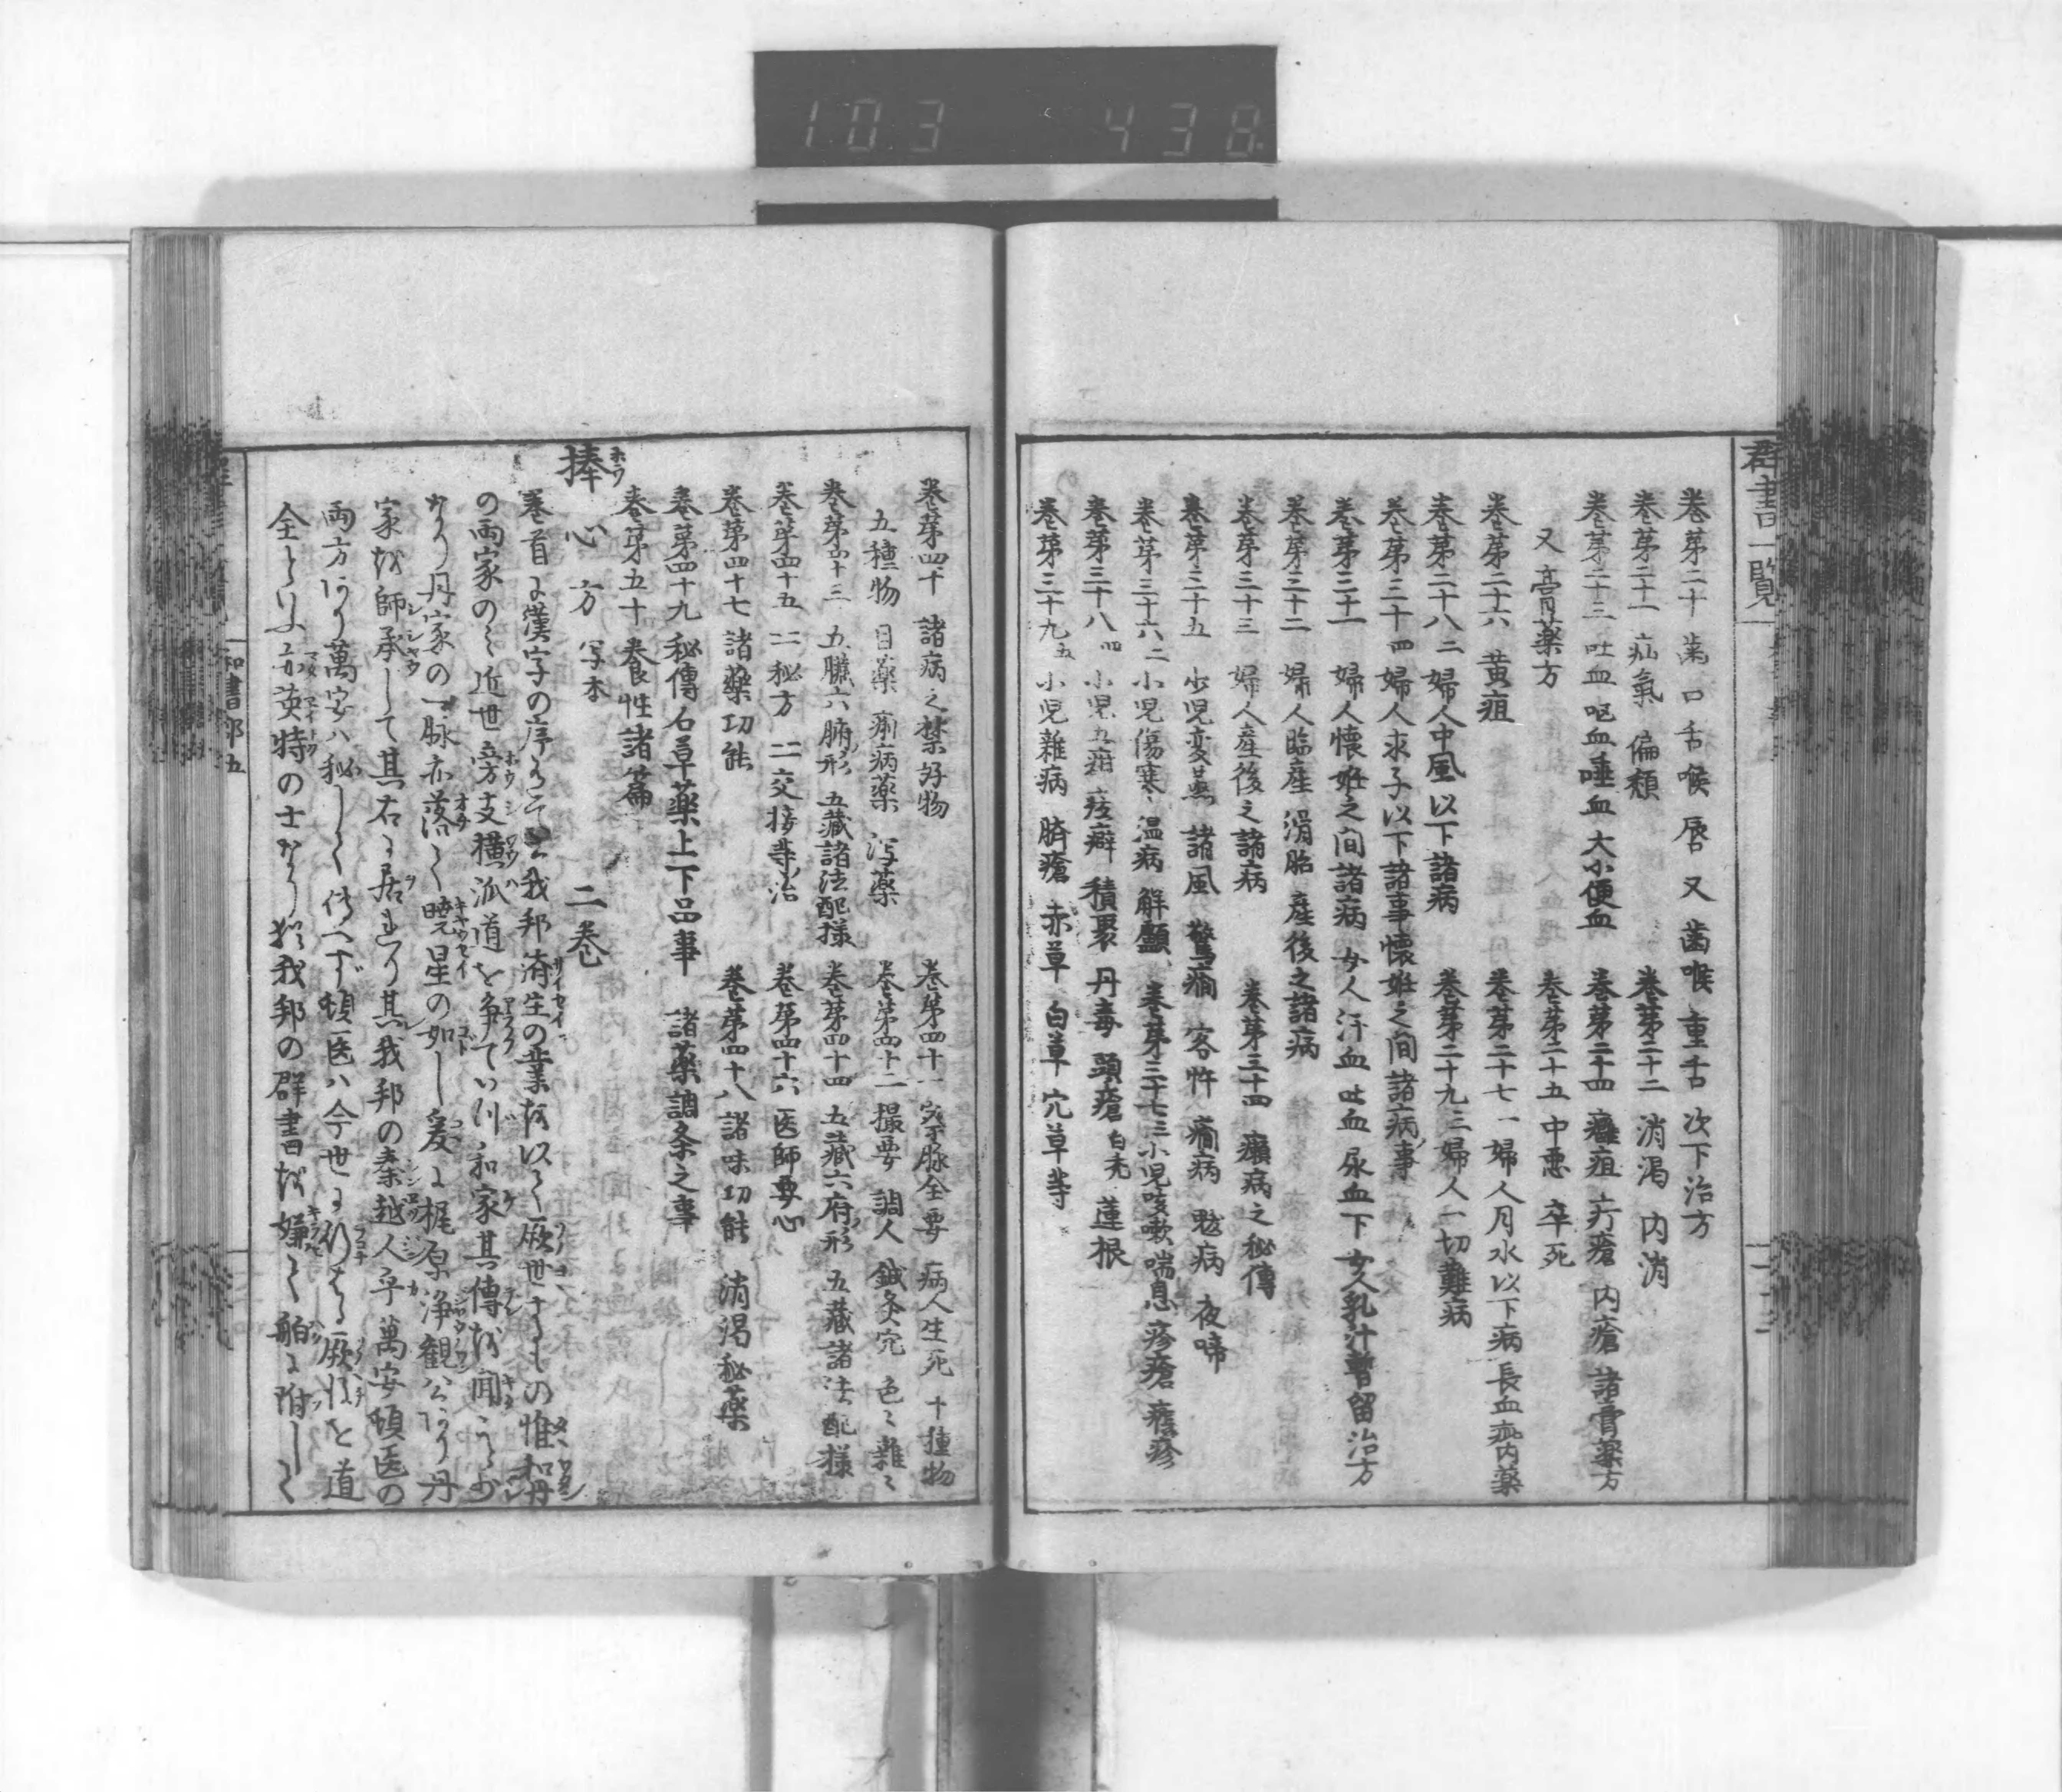 103 438
群書一覧
巻第二十 歯口舌喉唇 又歯喉重舌次下治方
巻第二十一 疝氣 偏頽 巻第二十二 消渇 内消
巻第二十三 吐血 嘔血 唾血 大小便血 巻第二十四 癰疽 疔瘡 内瘡 諸膏薬方
又膏薬方 巻第二十五 中悪 卒死
巻第二十六 黄疸 巻第二十七 一 婦人月水以下病 長血 内薬
巻第二十八 二 婦人中風以下諸病 巻第二十九 三 婦人一切難病
巻第三十 四 婦人求子以下諸事懐妊之間諸病事
巻第三十一 婦人懐妊之間諸病 女人汗血 吐血 尿血下 女人乳汁暫留治方
巻第三十二 婦人臨産 滑胎 産後之諸病
巻第三十三 婦人産後之諸病 巻第三十四 癩病之秘傳
巻第三十五 小児変蒸 諸風 驚癇 客忤 癇病 魃病 夜啼
巻第三十六 二 小児傷寒 温病 解顱 巻第三十七 三 小児咳嗽喘息 疹瘡 癮疹
巻第三十八 四 小児五疳 痃癖 積聚 丹毒 頭瘡 白禿 蓮根
巻第三十九 五 小児雜病 臍瘡 赤草 白草 穴草等
巻第四十 諸病之禁好物 巻第四十一 脉全要 病人生死 十種物
五種物 目薬 痢病薬 瀉薬 巻第四十二 撮要 調人 鍼灸穴 色々雜々
巻第四十三 五臟六腑形 五藏諸法配様 巻第四十四 五藏六府形 五藏諸法配様
巻第四十五 二秘方 二交接等治 巻第四十六 医師要心
巻第四十七 諸藥功能 巻第四十八 諸味功能 消渇秘薬
巻第四十九 秘傳石草藥上下品事 諸藥調条之事
巻第五十 養性諸篇
捧心方 写本 二巻
巻首に漢字の序あり其我邦済生の業を以て厥世するもの惟和丹
の両家のミ近世旁支横泒道を争ていつ和家其傳を聞こと少
なり丹家の一脉亦落て暁星の如し爰に梶原浄観公あり丹
家を師承して其右に居れり其我邦の秦越人乎萬安頓医の
両方あり萬安ハ秘して傳へず頓医ハ今世に行はる厥後と道
全といふ亦英特の士なり我邦の群書を嫌て舶に附して
和書部五